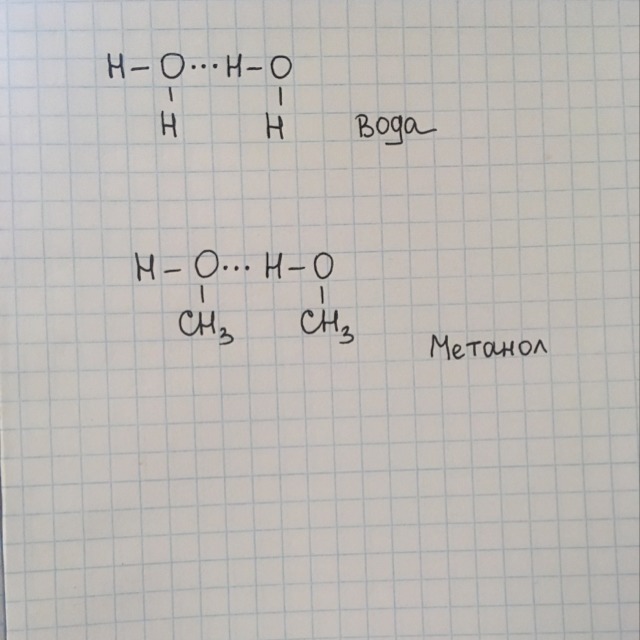 H–O···H–O
H H Вода
H–O···H–O
CH₃ CH₃
Метанол